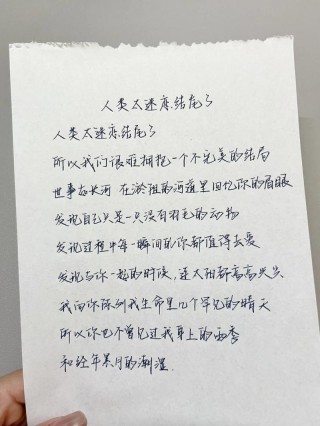 人类太迷恋结尾了
人类太迷恋结尾了
所以我们很难拥抱一个不完美的结局
世事如长河 在淤阻的河道里回忆你的眉眼
发现自己只是一只没有羽毛的动物
发现过程中每一瞬间的你都值得去爱
发现与你一起的时候,连太阳都高高兴兴
我向你陈列我生命里几个罕见的晴天
所以你也不曾见过我身上的雨季
和经年累月的潮湿